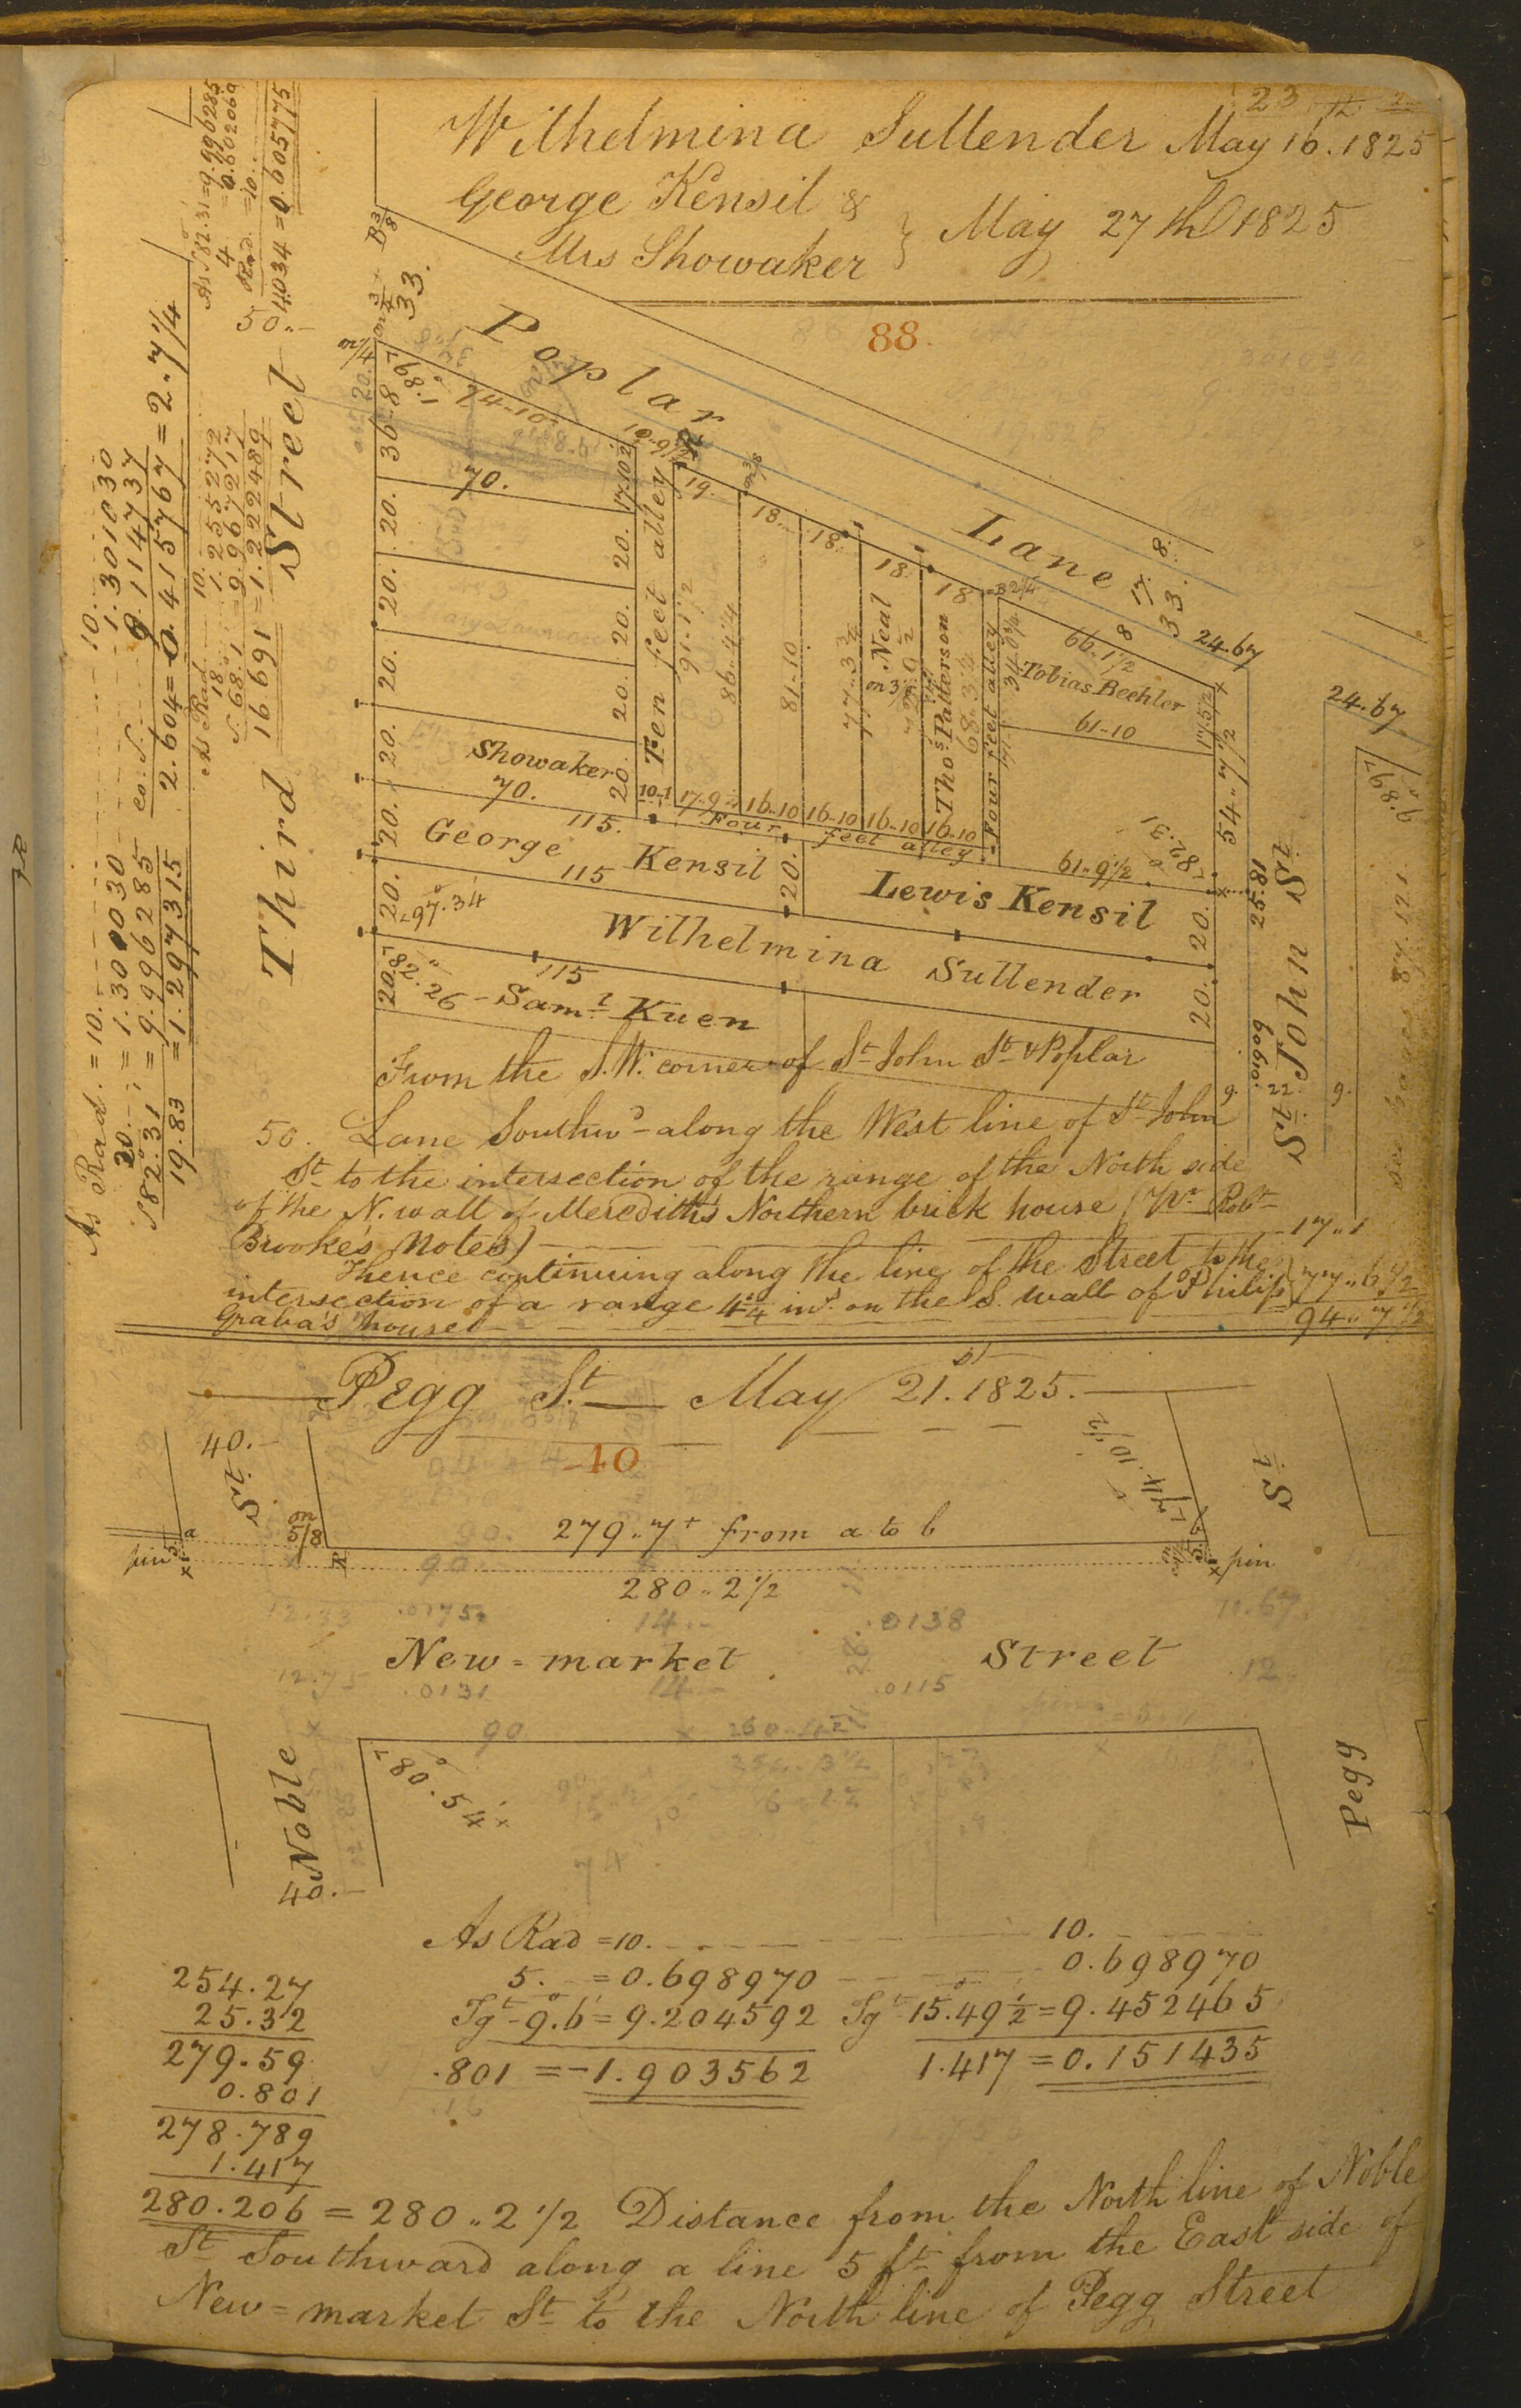 23
Wilhelmina Sullender May 16. 1825
George Kensil & } May 27th 1825
Mrs Showaker
88.
As S 82.31 = 9.996285
4 = 0.602069
Rad. = 10.
4.034 = 0.605775
50.
10.
1.301030
9.114737
co. S.
2.604 = 0.415767 = 2..7 1/4
As Rad 10.
18 1.255272
S. 68.1 = 9.967217
16.691 = 1.222489
As Rad. = 10.
20. = 1.301030
S 82.31 = 9.996285
19.83 = 1.297315
Third Street
Poplar Lane
33.
on 1/4
20.
36..8
74..10
70.
17..10 2
20.
20.
20.
20.
20.
20.
20.
20.
20.
20.
20.
20.
Ten feet alley
91..1 1/2
86..4 1/4
81..10
77..3 3/4
Neal
Thos Patterson
68..3 1/4
Four feet alley
19.
18.
18.
18.
18
66..1 1/2
Tobias Beehler
61-10
17..5 1/2
54..7 1/2
8.
17.
33.
24.67
24.67
Showaker
70.
10..1
17..9
16..10
16..10
16..10
16..10
Four feet alley
115.
George Kensil
115
20.
61..9 1/2
82.31
Lewis Kensil
20.
97.34
Wilhelmina Sullender
20.
82.26
115
Saml Kuen
25.81
St John St
22
9.
9.
see pages 87.121.
From the S.W. corner of St John St & Poplar
50. Lane Southwd along the West line of St John
St to the intersection of the range of the North side
of the N. wall of Meredith's Northern brick house (pr Robt
Brooke's Notes) 17..1
Thence continuing along the line of the Street to the
intersection of a range 4 1/4 ins on the S. wall of Philip 77..6 1/2
Graba's house 94..7 1/2
Pegg St. May 21st. 1825.
40
40.
St
on 5/8
a
pin
279..7+ from a to b
280..2 1/2
74.10 1/2
St
pin
90
12.33
.0175
14..
.0138
12.67
New=market Street
12.75
.0131
14..
.0115
12.
90
260..4 1/2
Noble
40.
80.54
Pegg
74
As Rad = 10. 10.
5. = 0.698970 0.698970
Tgt 9.6 = 9.204592 Tgt 15.49 1/2 = 9.452465
.801 = -1.903562 1.417 = 0.151435
254.27
25.32
279.59
0.801
278.789
1.417
280.206 = 280..2 1/2 Distance from the North line of Noble
St Southward along a line 5 ft from the East side of
New=market St to the North line of Pegg Street